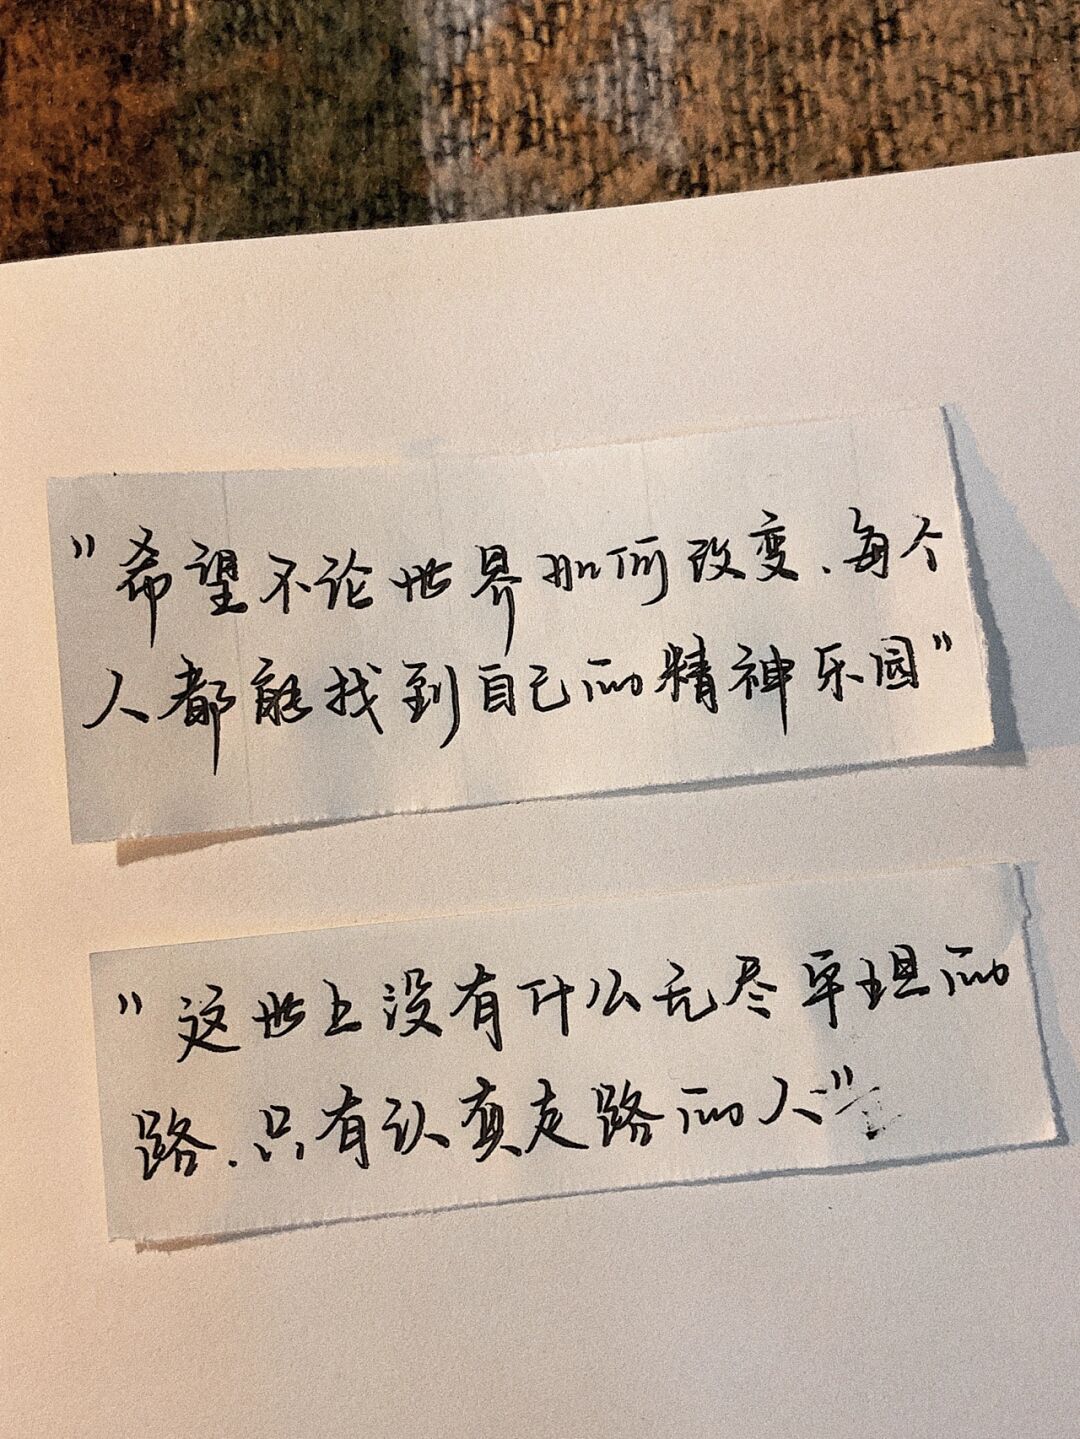 "希望不论世界如何改变.每个
人都能找到自己的精神乐园"
"这世上没有什么无尽平坦的
路.只有认真走路的人"